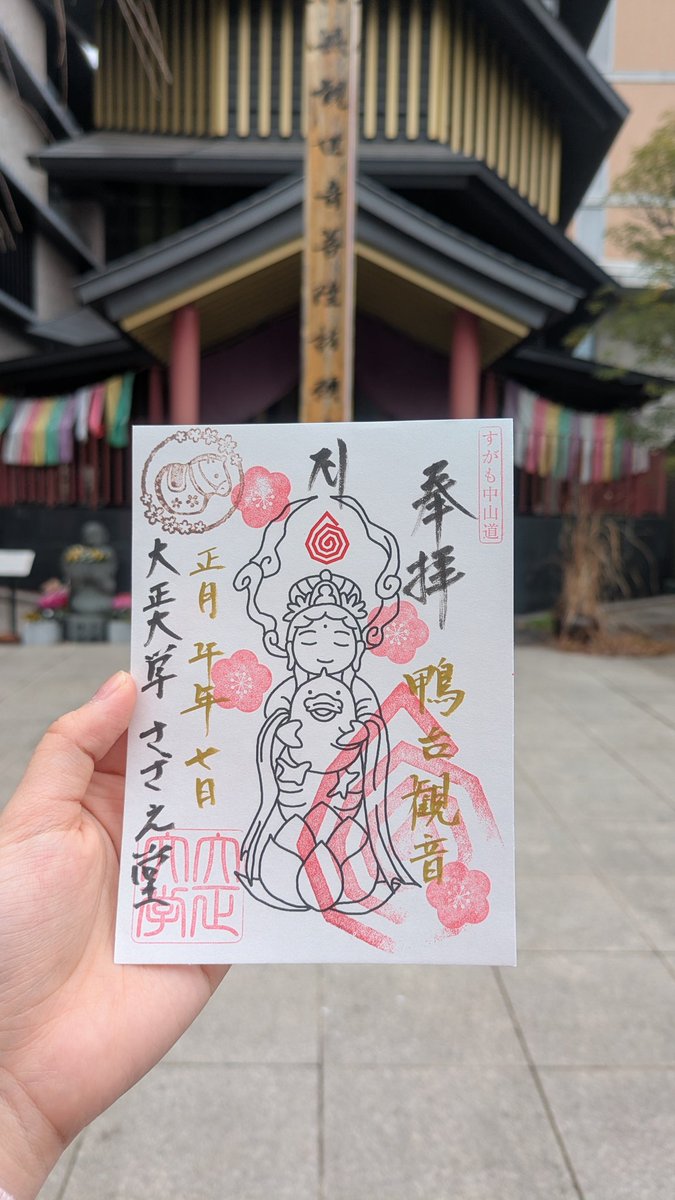 観世音菩薩
すがも中山道
奉拝
鴨台観音
正月 午年 七日
大正大学 さざえ堂
大正
大学